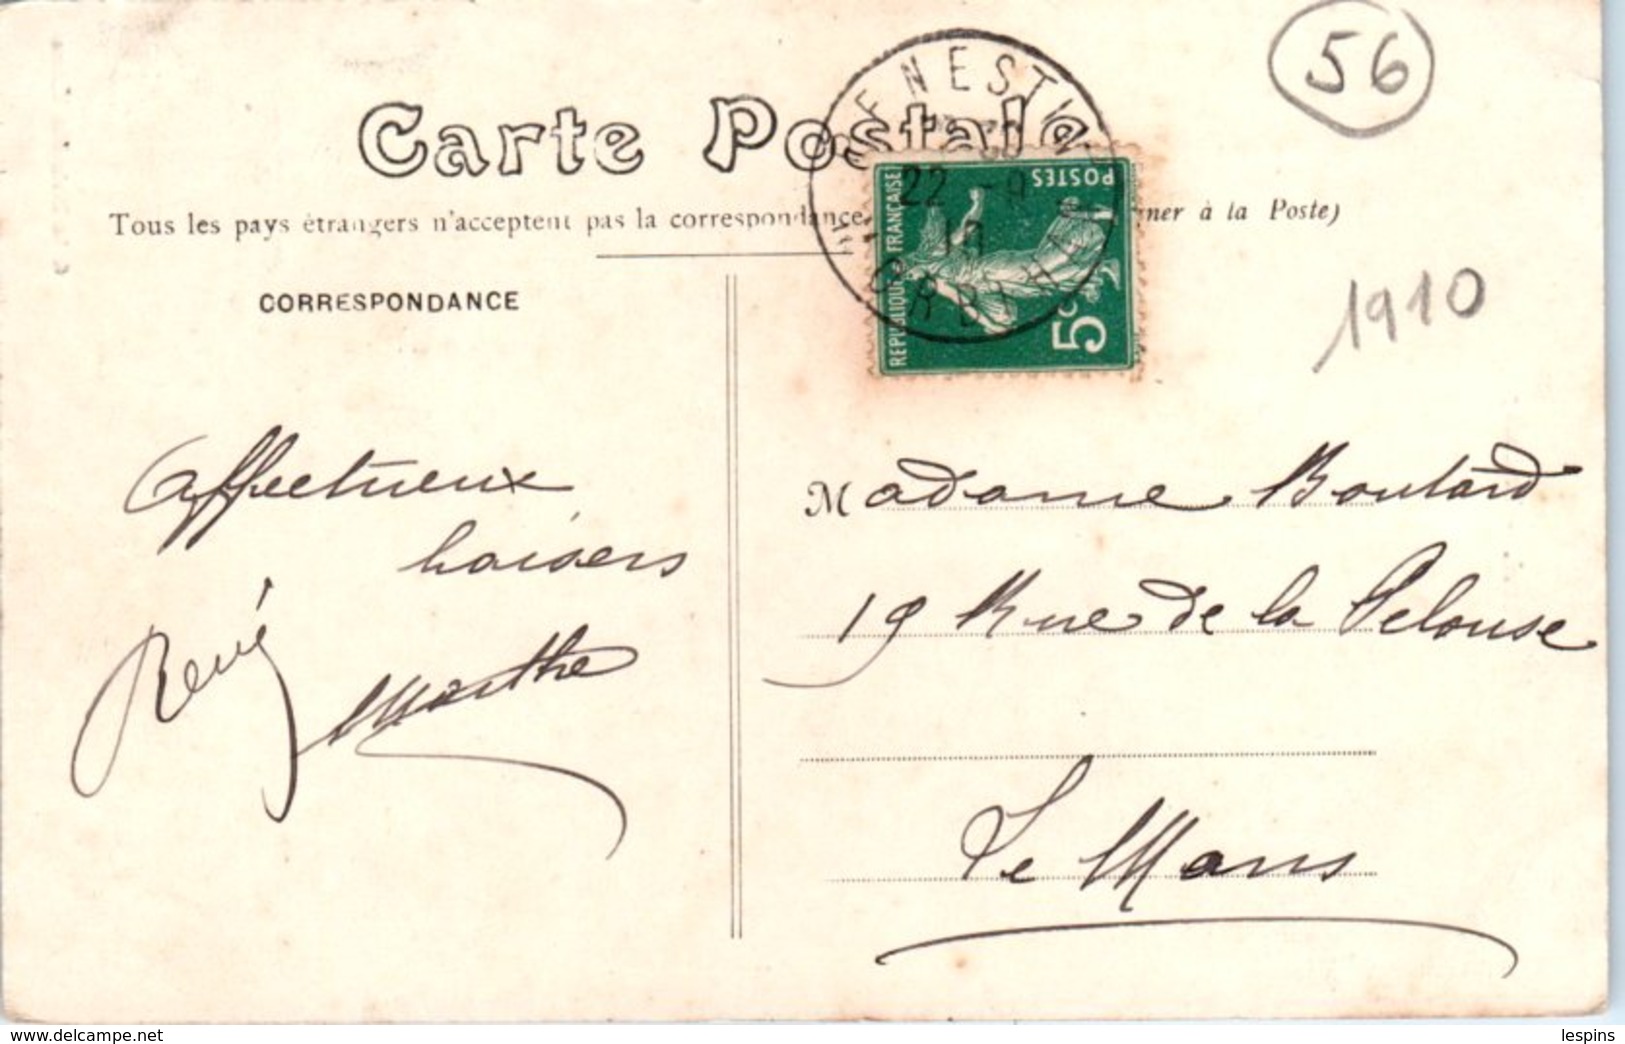 56
Carte Postale
Tous les pays étrangers n'acceptent pas la correspondance ner à la Poste)
CORRESPONDANCE
22 -9
10
MORBIHAN
POSTES
REPUBLIQUE FRANÇAISE
5c
1910
affectueux
baisers
René
Marthe
Madame Boutard
19 Rue de la Pelouse
Le Mans
www.delcampe.net
lespins